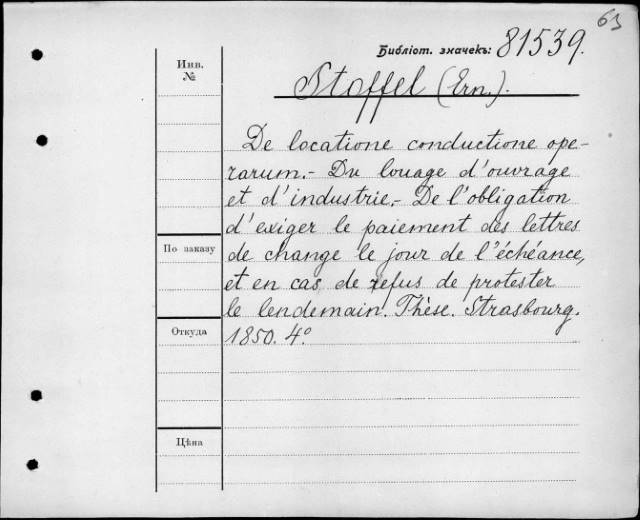 63
Библіот. значекъ: 81539.
Инв.
№
Stoffel (Ern.).
De locatione conductione ope-
rarum.- Du louage d'ouvrage
et d'industrie.- De l'obligation
d'exiger le paiement des lettres
По заказу
de change le jour de l'échéance,
et en cas de refus de protester
le lendemain. Thèse. Strasbourg.
Откуда
1850. 4°.
Цѣна